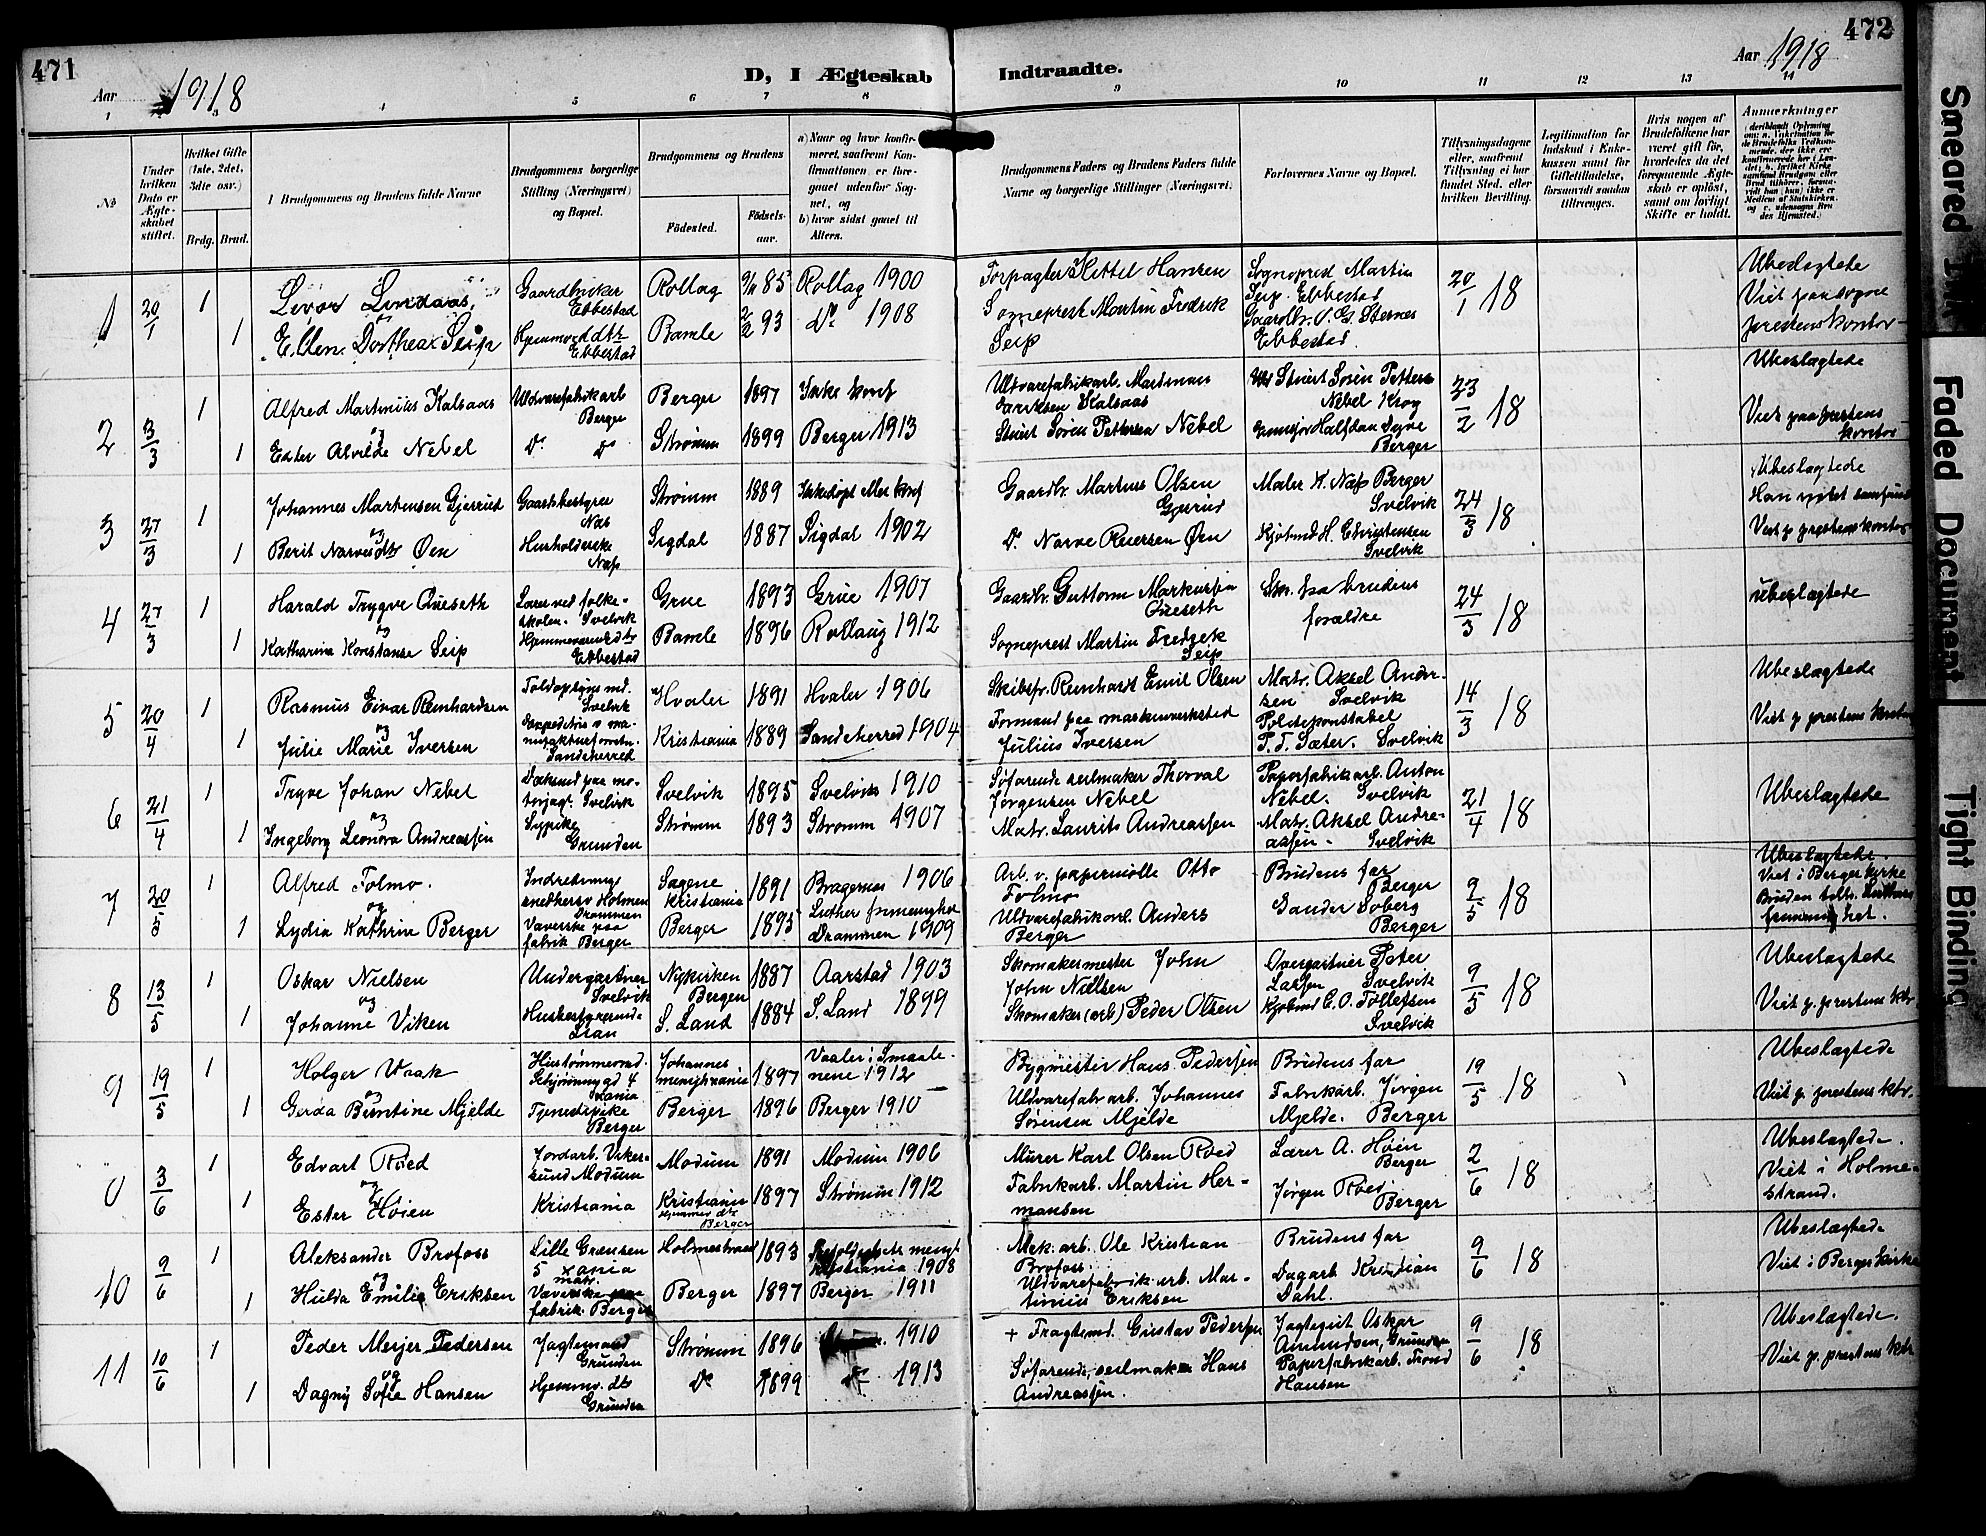 471
472
Aar 1918
D, I Ægteskab
Indtraadte.
Aar 1918
1
3
4
5
6
7
8
9
10
11
12
13
14
No
Under hvilken Dato er Ægte-skabet stiftet.
Hvilket Gifte (1ste, 2det, 3die osv.)
Brdg.
Brud.
Brudgommens og Brudens fulde Navne
Brudgommens borgerlige Stilling (Næringsvei) og Bopæl.
Brudgommens og Brudens
Fødested.
Fødsels-aar.
a) Naar og hvor konfir-meret, saafremt Kon-firmationen er fore-gaaet udenfor Sog-net, og
b) hvor sidst gaaet til Alters.
Brudgommens Faders og Brudens Faders fulde Navne og borgerlige Stillinger (Næringsvei)
Forlovernes Navne og Bopæl.
Tillysningsdagene eller, saafremt Tillysning ei har fundet Sted, efter hvilken Bevilling.
Legitimation for Indskud i Enke-kassen samt for Giftetilladelse, forsaavidt saadan tiltrænges.
Hvis nogen af Brudefolkene har været gift før, hvorledes da det foregaaende Ægte-skab er opløst, samt om lovligt Skifte er holdt.
Anmerkninger
1
20/1
1
1
og
Ellen Dorthea Seip
Gaardbruker
Ebbestad
Hjemmev. dtr
Ebbestad
Rollag
85
Rollag 1900
Bamle
2/2 93
Do 1908
Forpagter Kittel Hansen
Sogneprest Martin Fredrik
Seip
Sogneprest Martin
Seip. Ebbestad
Ebbestad.
20/1 18
Ubeslegtede
Viet paa sogne
prestens kontor
2
3/3
1
1
Alfred Martinius Kalsaas
og
Ester Alvilde Nebel
Uldvarefabrikarb
Berger
Do Do
Berger
1897
Ikke konf
Strømm
1899
Berger 1913
Uldvarefabrikarb. Martinius
Kalsaas
Stuert Søren Pettersen Nebel
Stuert Søren Petters
Nebel Krog
Halfdan
Berger
23/2 18
Ubeslægtede
Viet paa prestens
kontor
3
27/3
1
1
Johannes Martinsen Gjerud
og
Berit Narvesdtr Øen
Gaardsbestyrer
Næs
Husholderske
Næs
Strømm
1889
Sigdal
1887
Sigdal 1902
Gaardbr. Martinus Olsen
Do Narve Øen
Maler K. Næss Berger
Svelvik
Kjøbmd H. Christensen
Svelvik
24/3 18
Ubeslægtede
Viet p prestens kontor
4
27/3
1
1
Harald Trygve Queseth
og
Katharina Konstanse Seip
Lærer ved folke-
skolen. Svelvik
Ebbestad
Grue
1893
Grue 1907
Bamle
1896
Rollaug 1912
Gaardbr. Guttorm Markussen
Queseth
Sogneprest Martin Fredrik
Seip
foræeldre
24/3 18
ubeslægtede
5
20/4
1
1
Rasmus Einar Reinhardsen
og
Julie Marie Iversen
Svelvik
Sandeherred
Hvaler
1891
Hvaler 1906
Kristiania
1889
Sandeherred 1904
Skibsfr. Reinhardt Emil Olsen
Formand paa maskinverksted
Julius Iversen
Matr. Aksel Andr-
sen Svelvik
Politikonstabel
P. T. Sæter. Svelvik
14/3 18
Ubeslægtede
Viet p. prestens kontor
6
21/4
1
1
Trygve Johan Nebel
og
Ingeborg Leonora Andreassen
Dæksmd paa mo-
torjagt. Svelvik
Sypike
Grunden
Svelvik
1895
Svelvik 1910
Strømm
1893
Strømm 1907
Søfarende seilmaker Thorval
Jørgensen Nebel
Matr. Laurits Andreassen
Papirfabrikarb. Anton
Nebel. Svelvik
Matr. Aksel Andre-
assen - Svelvik
21/4 18
Ubeslægtede
7
20/5
1
1
Alfred Folmo.
og
Lydia Kathrine Berger
Indrednings
snedker v Holmen
Drammen
Væverske paa
fabrik Berger
Sagene
Kristiania
1891
Bragernes 1906
Berger
1895
Luther frimenighet
Drammen 1909
Arb. v. papirmølle Otto
Folmo
Uldvarefabrikarb. Anders
Berger
Brudens far
Berger
Sander Soberg
Berger
9/5 18
Ubeslægtede.
Viet i Berger kirke
8
13/5
1
1
Oskar Nielsen
og
Johanne Viken
Undergartner
Svelvik
Nykirken
Bergen
1887
Aarstad 1903
S. Land
1884
S. Land 1899
Skomakermester John
John Nielsen
Skomaker (arb) Peder Olsen
Overgartner Peter
Larsen Svelvik
Kjøbmd C. O. Tollefsen
Svelvik
9/5 18
Ubeslægtede
Viet p. prestens ktr
9
19/5
1
1
Holger Vaak
og
Gerda Buntine Mjelde
Tjenestepike
Berger
Johannes
1897
Vaaler i Smaale-
nene 1912
Berger
1896
Berger 1910
Bygmester Hans Pedersen
Uldvarefabr arb. Johannes
Sørensen Mjelde
Brudens far
Fabrikarb. Jørgen
Mjelde. Berger
19/5 18
Ubeslægtede
Viet p. prestens ktr.
0
3/6
1
1
Edvart Røed
og
Ester Høien
Jordarb. Viker-
sund Modum
Kristiania
Modum
1891
Modum 1906
Kristiania
Hjemmev dtr
Berger
1897
Strømm 1912
Murer Karl Olsen Røed
Fabrikarb. Martin Her-
mansen
Lærer A. Høien
Berger
Jørgen Røed
Berger
2/6 18
Ubeslægtede.
Viet i Holme-
strand.
10
9/6
1
1
Aleksander Brofoss
og
Hulda Emilie Eriksen
Lille Grænsen
5 Xania
matr.
Væverske paa
fabrik. Berger
Holmestrand
1893
Kristiania 1908
Berger
1897
Berger 1911
Mek. arb. Ole Kristian
Brofoss.
Uldvarefabrik arb. Mar-
tinius Eriksen
Brudens far
Dagarb Kristian
Dahl.
9/6 18
Ubeslægtede
Viet i Berger kirke
11
10/6
1
1
Peder Meijer Pedersen
og
Dagny Sofie Hansen
Jagtemand
Grunden
Hjemmv. dtr
Grunden
Strømm
1896
1910
Do
1899
Do 1913
+ Fragtemd. Gustav Pedersen
Søfarende, seilmaker Hans
Andreassen.
Oskar
Amundsen, Grunden
Papirfabrikarb. Trond
Hansen
9/6 18
Ubeslægtede.
Viet p. prestens ktr
Smeared Ink
Faded Document
Tight Binding